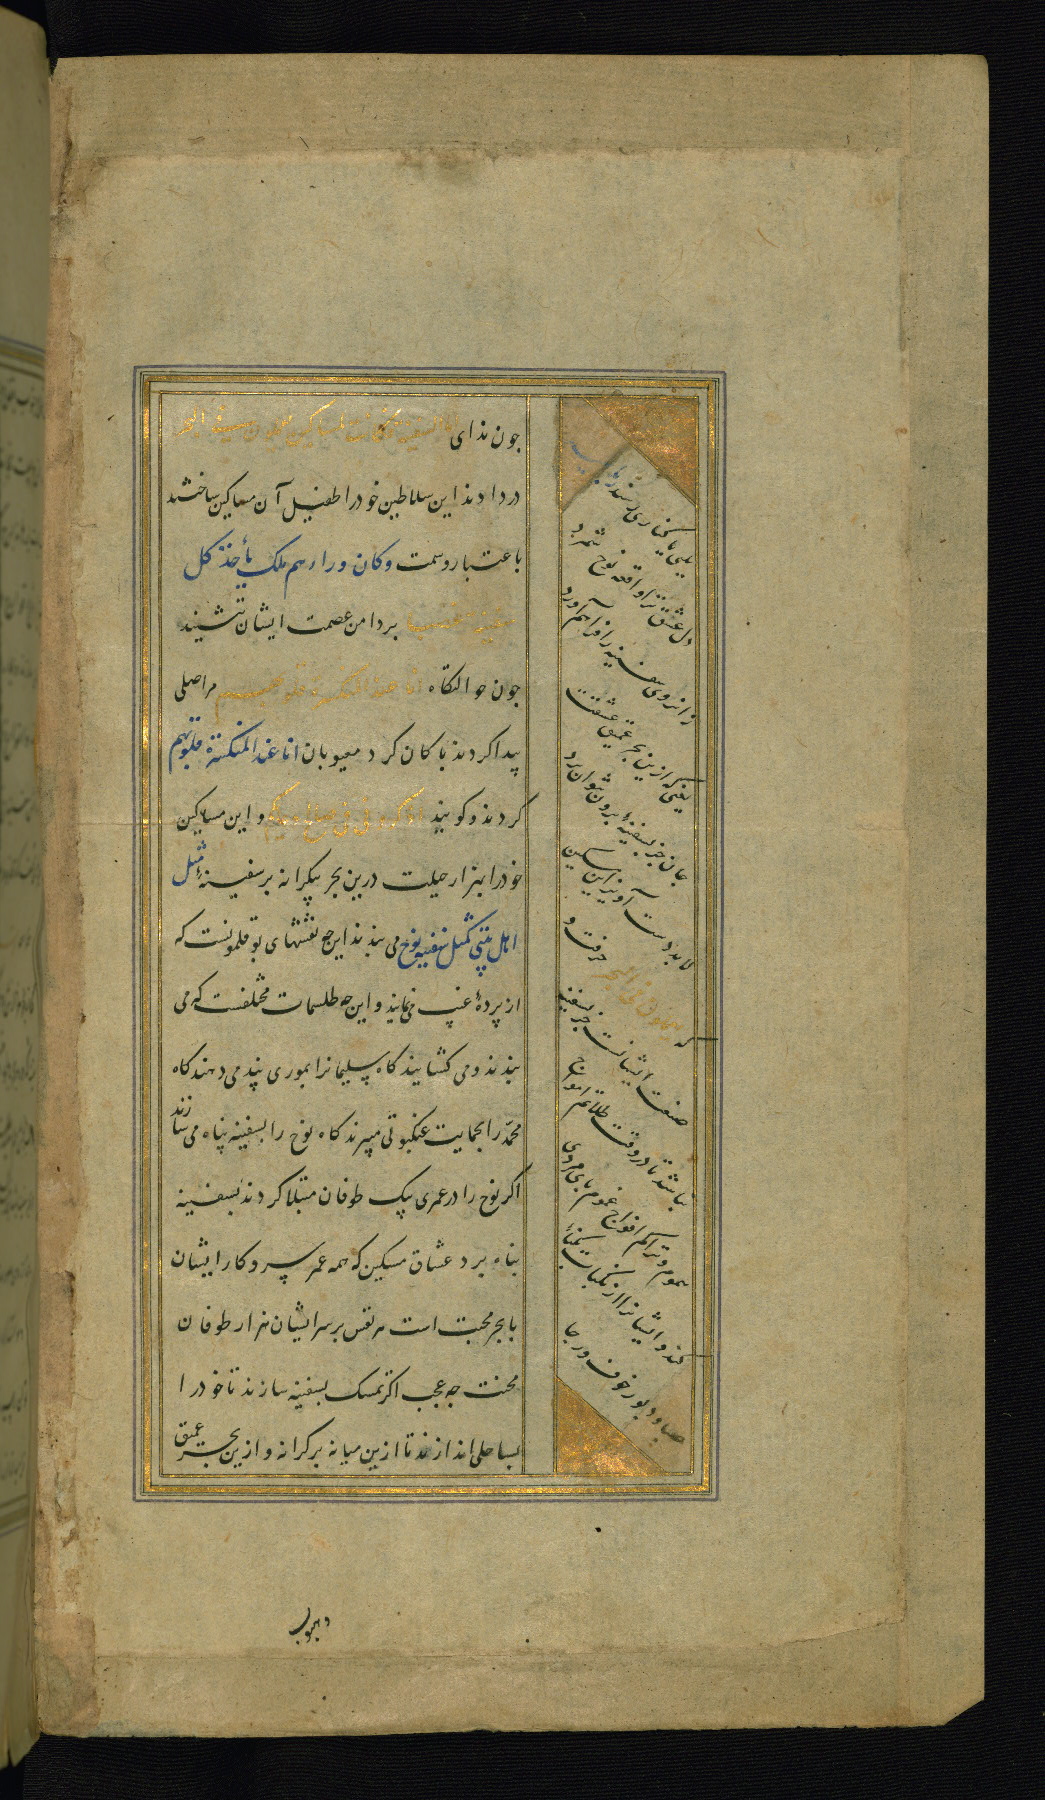 چون ندای اما السفینة فکانت لمساکین یعملون فی البحر
در دادند این سلاطین خود را طفیل آن مساکین ساختند
باعتبار وسمت وکان وراءهم ملک یأخذ کل
سفینة غصبا بر دامن عصمت ایشان ننشیند
چون حوالتکاه انا عند المنکسرة قلوبهم مر اصلی
پیدا کردند پاکان کرد معیوبان انا عند المنکسرة قلوبهم
کردند و کویند و این مساکین
خود را بهزار حیلت درین بحر بیکرانه بر سفینهٔ مثل
اهل بیتی کمثل سفینه نوح می بندند این چه نقشهای بوقلمونست که
از پردهٔ غیب می نمایند و این چه طلسمات مختلفست که می
بندند و می کشایند کاه سلیمانرا بموری پند می دهند کاه
محمد را بحمایت عنکبوتی میبرند کاه نوح را بسفینه پناه می سازند
اکر نوح را در عمری یک طوفان مبتلا کردند بسفینه
پناه برد عشاق مسکین که همه عمر سر و کار ایشان
با بحر محبت است هر نفس بر سر ایشان هزار طوفان
محنت چه عجب اکر تمسک بسفینه سازند تا خود را
بساحلی اندازند تا ازین میانه بر کرانه و ازین بحر عمیق
یابی کناری رسند
دل عشق ترا واقعه نوح شمرد
زانروی سفینه را فراهم آورد
یعنی که ازین بحر عمیق عشقت
جان جز بسفینهٔ برون نتوان برد
لابد دست آویز این مسکین
حرفت و
صنعت ایشانست جز سفینه
نباشد تا در وقت تلاطم امواج
هموم و تراکم افواج غموم پای مردی
کند و ایشانرا از نکبات
صبا و دبور خوف و رجا